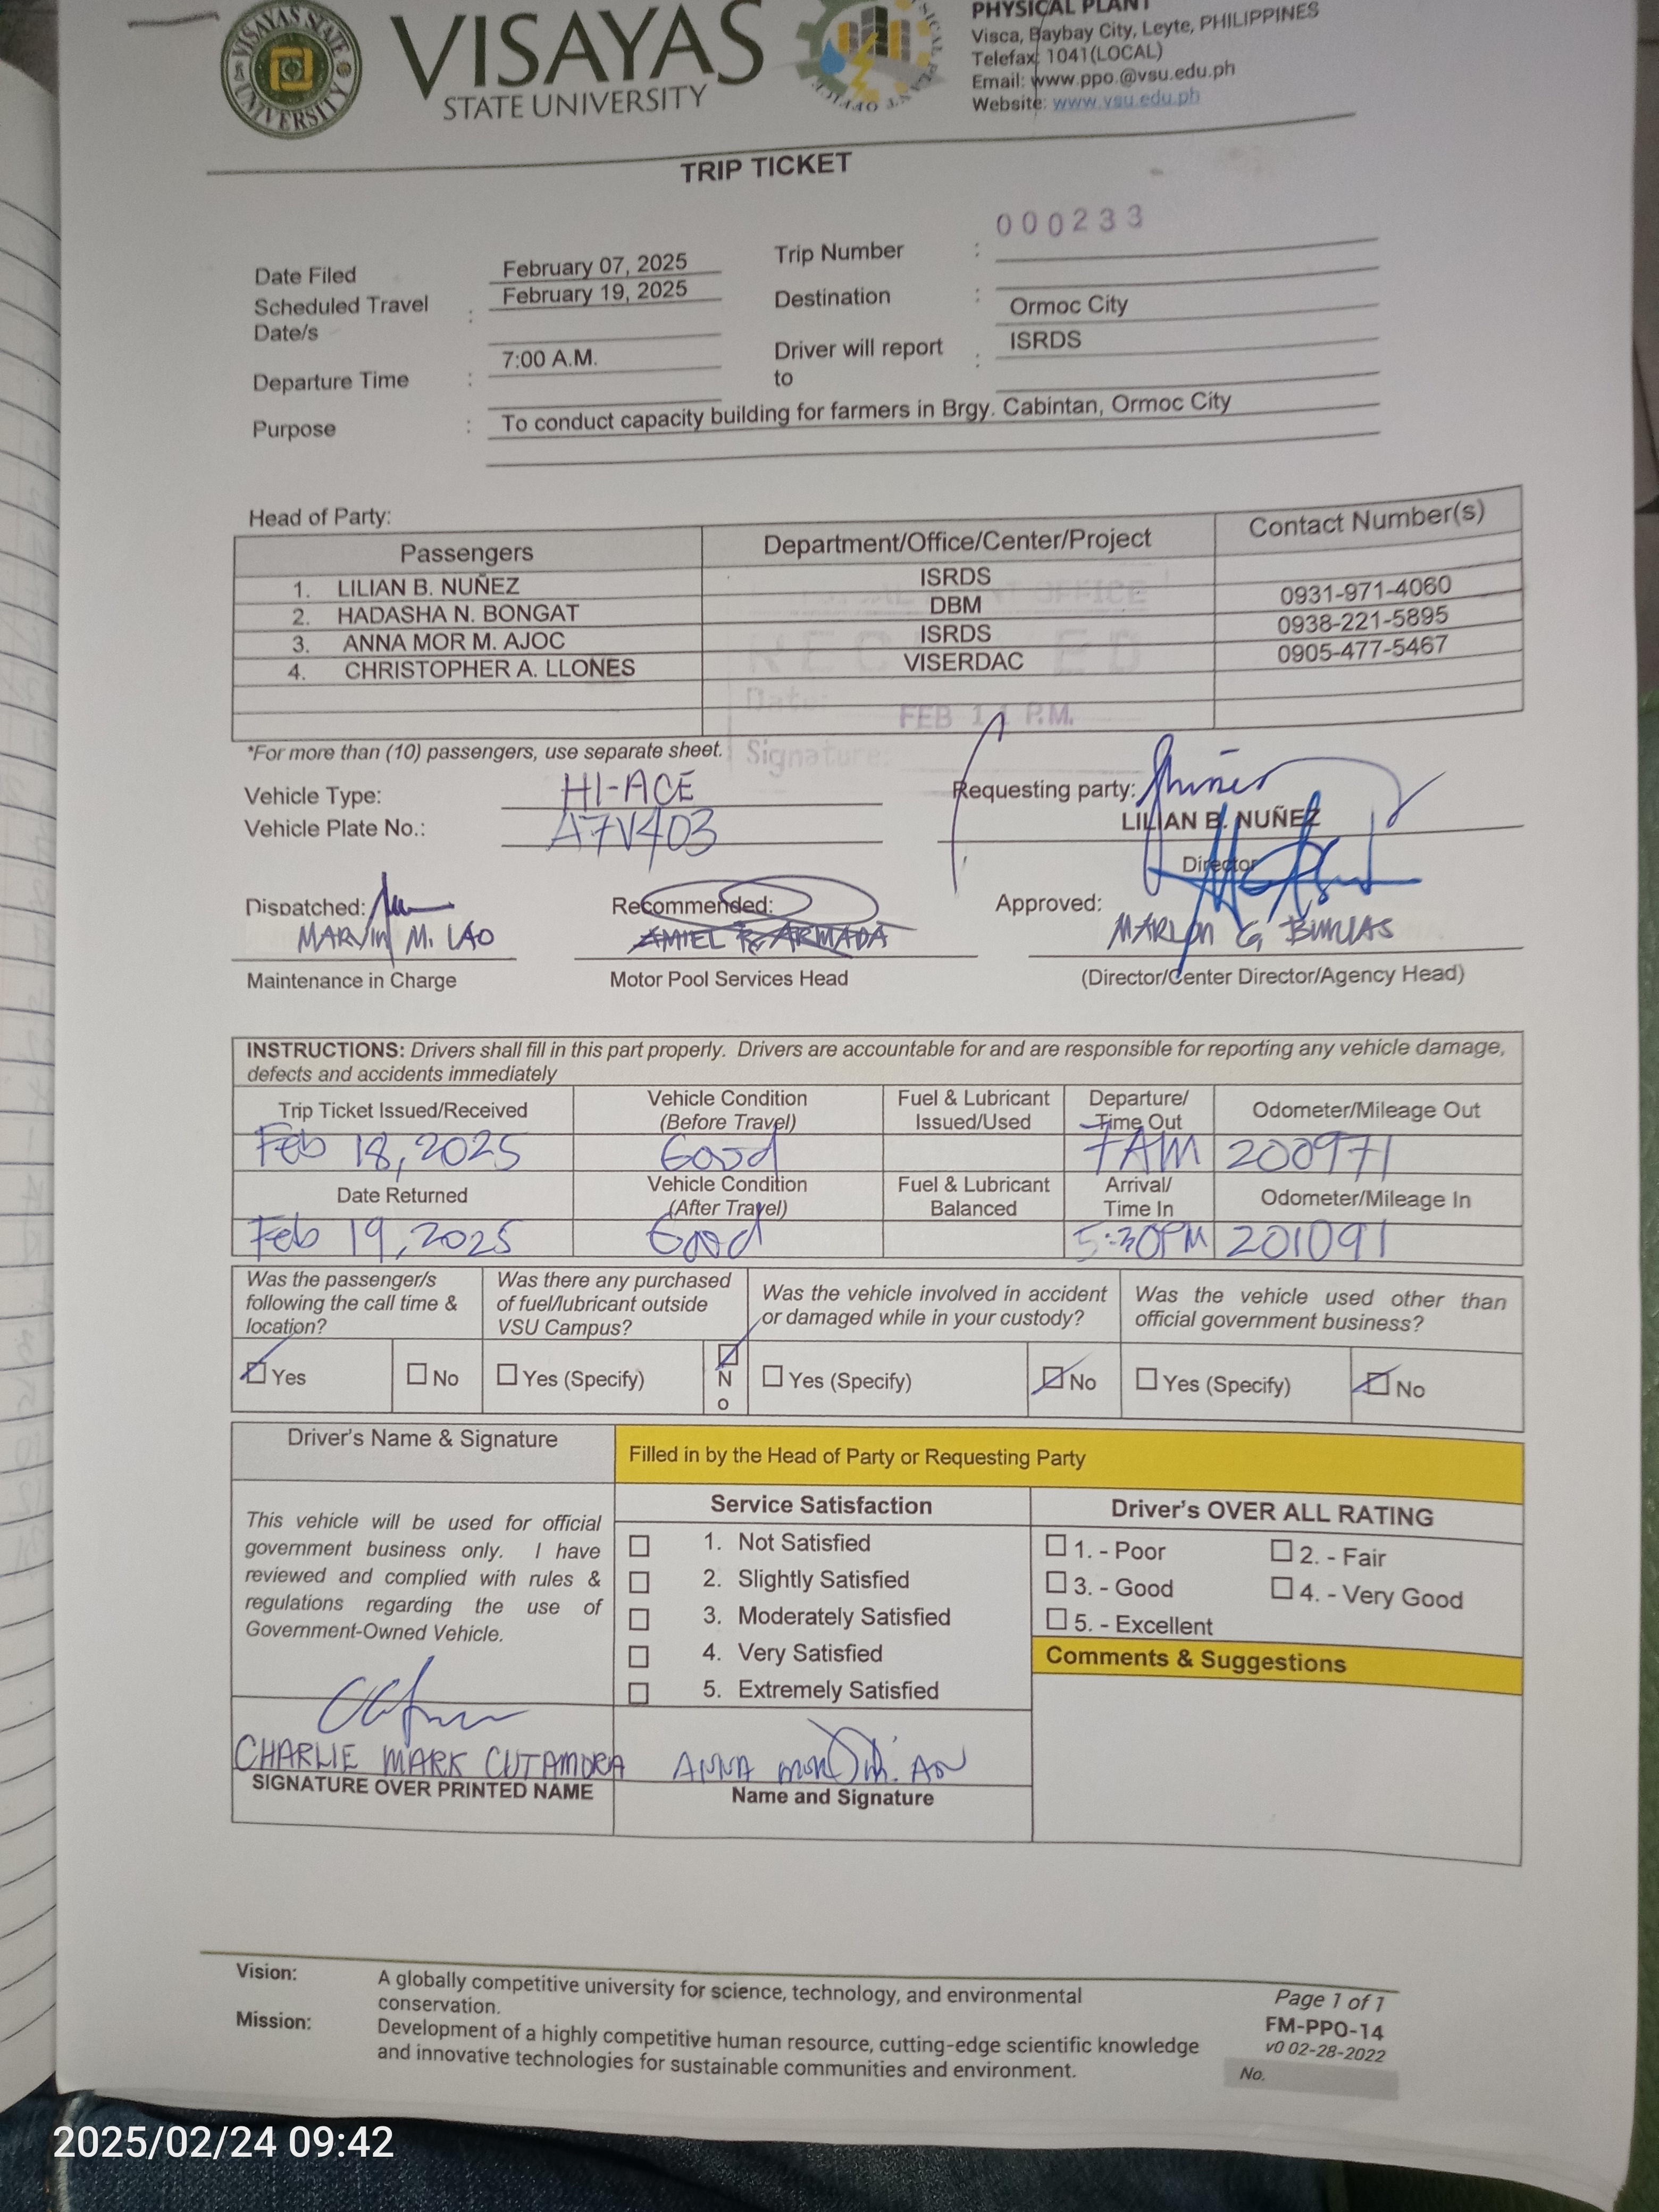 VISAYAS STATE UNIVERSITY
VISAYAS
STATE UNIVERSITY
PHYSICAL PLANT
Visca, Baybay City, Leyte, PHILIPPINES
Telefax: 1041(LOCAL)
Email: www.ppo.@vsu.edu.ph
Website: www.vsu.edu.ph
TRIP TICKET
000233
Date Filed February 07, 2025 Trip Number :
Scheduled Travel Date/s : February 19, 2025 Destination : Ormoc City
Departure Time : 7:00 A.M. Driver will report to : ISRDS
Purpose : To conduct capacity building for farmers in Brgy. Cabintan, Ormoc City
Head of Party:
Passengers Department/Office/Center/Project Contact Number(s)
1. LILIAN B. NUÑEZ ISRDS
2. HADASHA N. BONGAT DBM 0931-971-4060
3. ANNA MOR M. AJOC ISRDS 0938-221-5895
4. CHRISTOPHER A. LLONES VISERDAC 0905-477-5467
RECEIVED
Date: FEB 11 P.M.
Signature:
*For more than (10) passengers, use separate sheet.
Vehicle Type: HI-ACE Requesting party:
Vehicle Plate No.: A7V403 LILIAN B. NUÑEZ
Director
Dispatched: Recommended: Approved:
MARVIN M. LAO AMIEL R. ARMADA MARLON G.
Maintenance in Charge Motor Pool Services Head (Director/Center Director/Agency Head)
INSTRUCTIONS: Drivers shall fill in this part properly. Drivers are accountable for and are responsible for reporting any vehicle damage,
defects and accidents immediately
Trip Ticket Issued/Received Vehicle Condition (Before Travel) Fuel & Lubricant Issued/Used Departure/ Time Out Odometer/Mileage Out
Feb 18, 2025 Good 7AM 200971
Date Returned Vehicle Condition (After Travel) Fuel & Lubricant Balanced Arrival/ Time In Odometer/Mileage In
Feb 19, 2025 Good 5:30PM 201091
Was the passenger/s following the call time & location? Was there any purchased of fuel/lubricant outside VSU Campus? Was the vehicle involved in accident or damaged while in your custody? Was the vehicle used other than official government business?
Yes No Yes (Specify) No Yes (Specify) No Yes (Specify) No
Driver's Name & Signature Filled in by the Head of Party or Requesting Party
This vehicle will be used for official
government business only. I have
reviewed and complied with rules &
regulations regarding the use of
Government-Owned Vehicle.
CHARLIE MARK CUTAMORA
SIGNATURE OVER PRINTED NAME
Service Satisfaction
1. Not Satisfied
2. Slightly Satisfied
3. Moderately Satisfied
4. Very Satisfied
5. Extremely Satisfied
ANNA
Name and Signature
Driver's OVER ALL RATING
1. - Poor 2. - Fair
3. - Good 4. - Very Good
5. - Excellent
Comments & Suggestions
Vision: A globally competitive university for science, technology, and environmental
conservation.
Mission: Development of a highly competitive human resource, cutting-edge scientific knowledge
and innovative technologies for sustainable communities and environment.
Page 1 of 1
FM-PPO-14
v0 02-28-2022
No.
2025/02/24 09:42